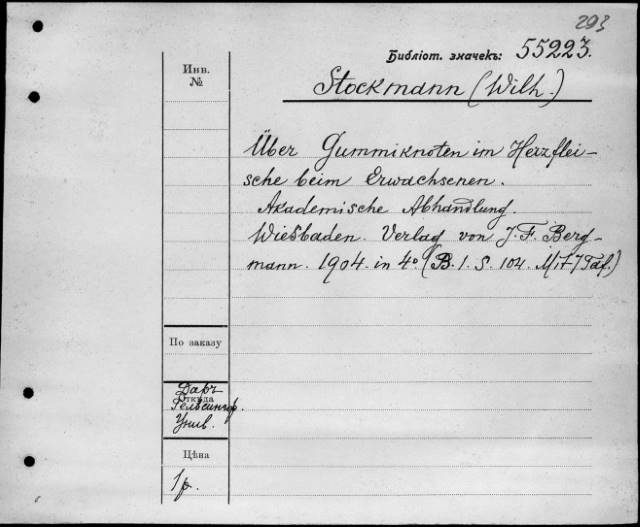 293
Библіот. значекъ: 55223.
Инв.
№
Stockmann (Wilh.)
Über Gummiknoten im Herzflei-
sche beim Erwachsenen.
Akademische Abhandlung.
Wiesbaden. Verlag von J. F. Berg-
mann. 1904. in 4° (B. 1. S. 104. Mit 7 Taf.)
По заказу
Откуда
Даръ
Гельсингф.
Унив.
Цѣна
1 р.